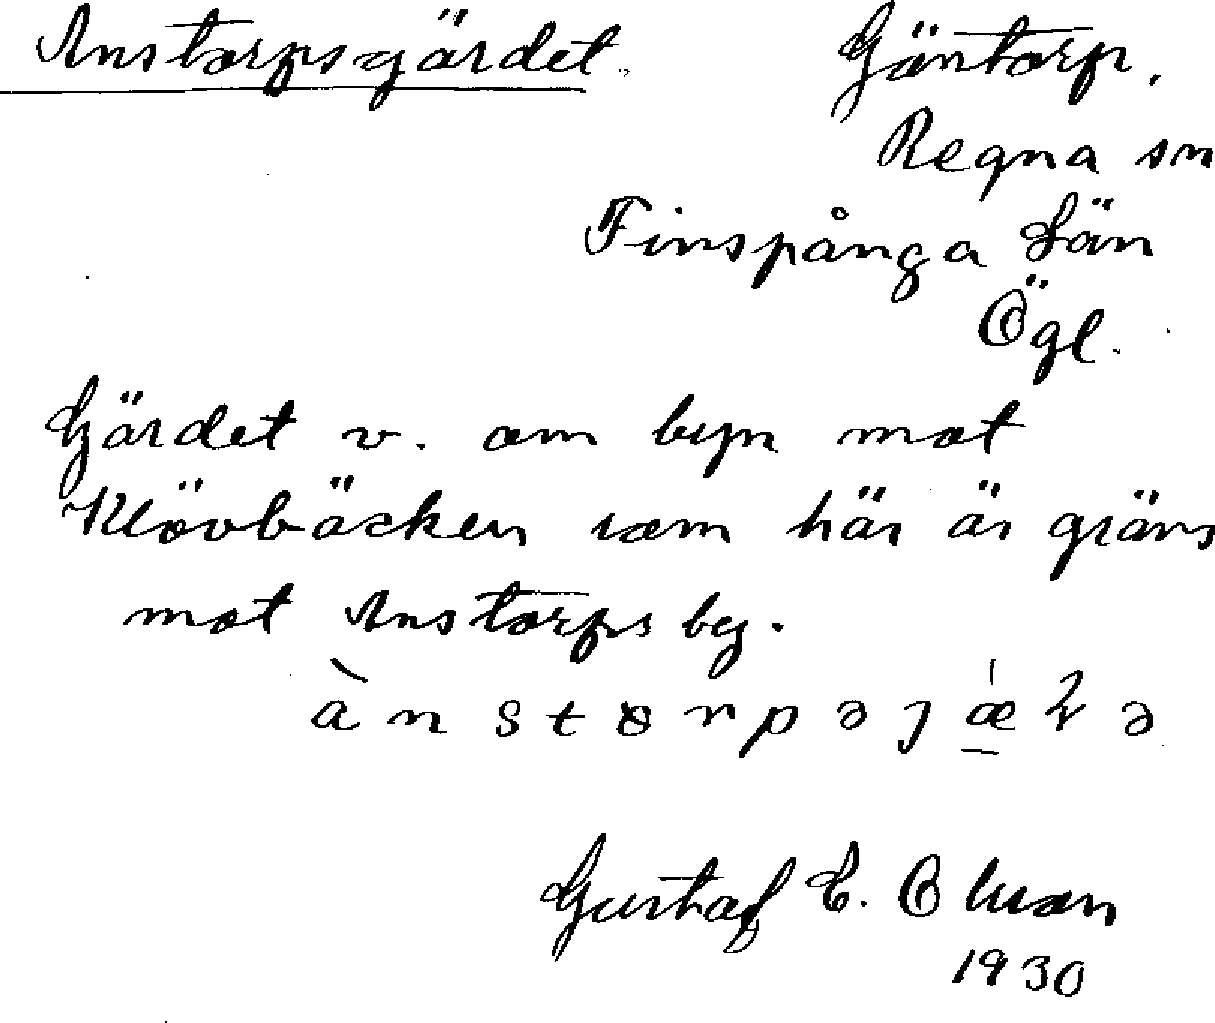 Anstorpsgärdet. Gäntorp.
Regna sn
Finspånga Län
Ögl.
Gärdet v. om byn mot
Klövbäcken som här är gräns
mot Anstorps by.
Gustaf E. Olsson
1930